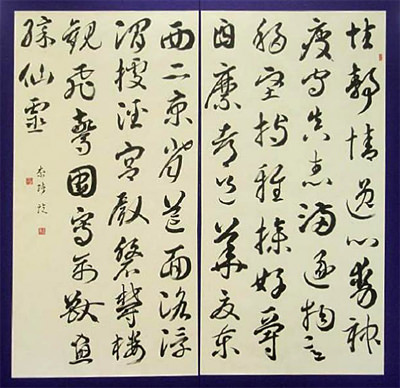 性靜情逸心動神
疲守真志滿逐物意
移堅持雅操好爵
自縻都邑華夏東
西二京背芒面洛浮
渭據涇宮殿盤鬱樓
觀飛驚圖寫禽獸畫
綵仙靈